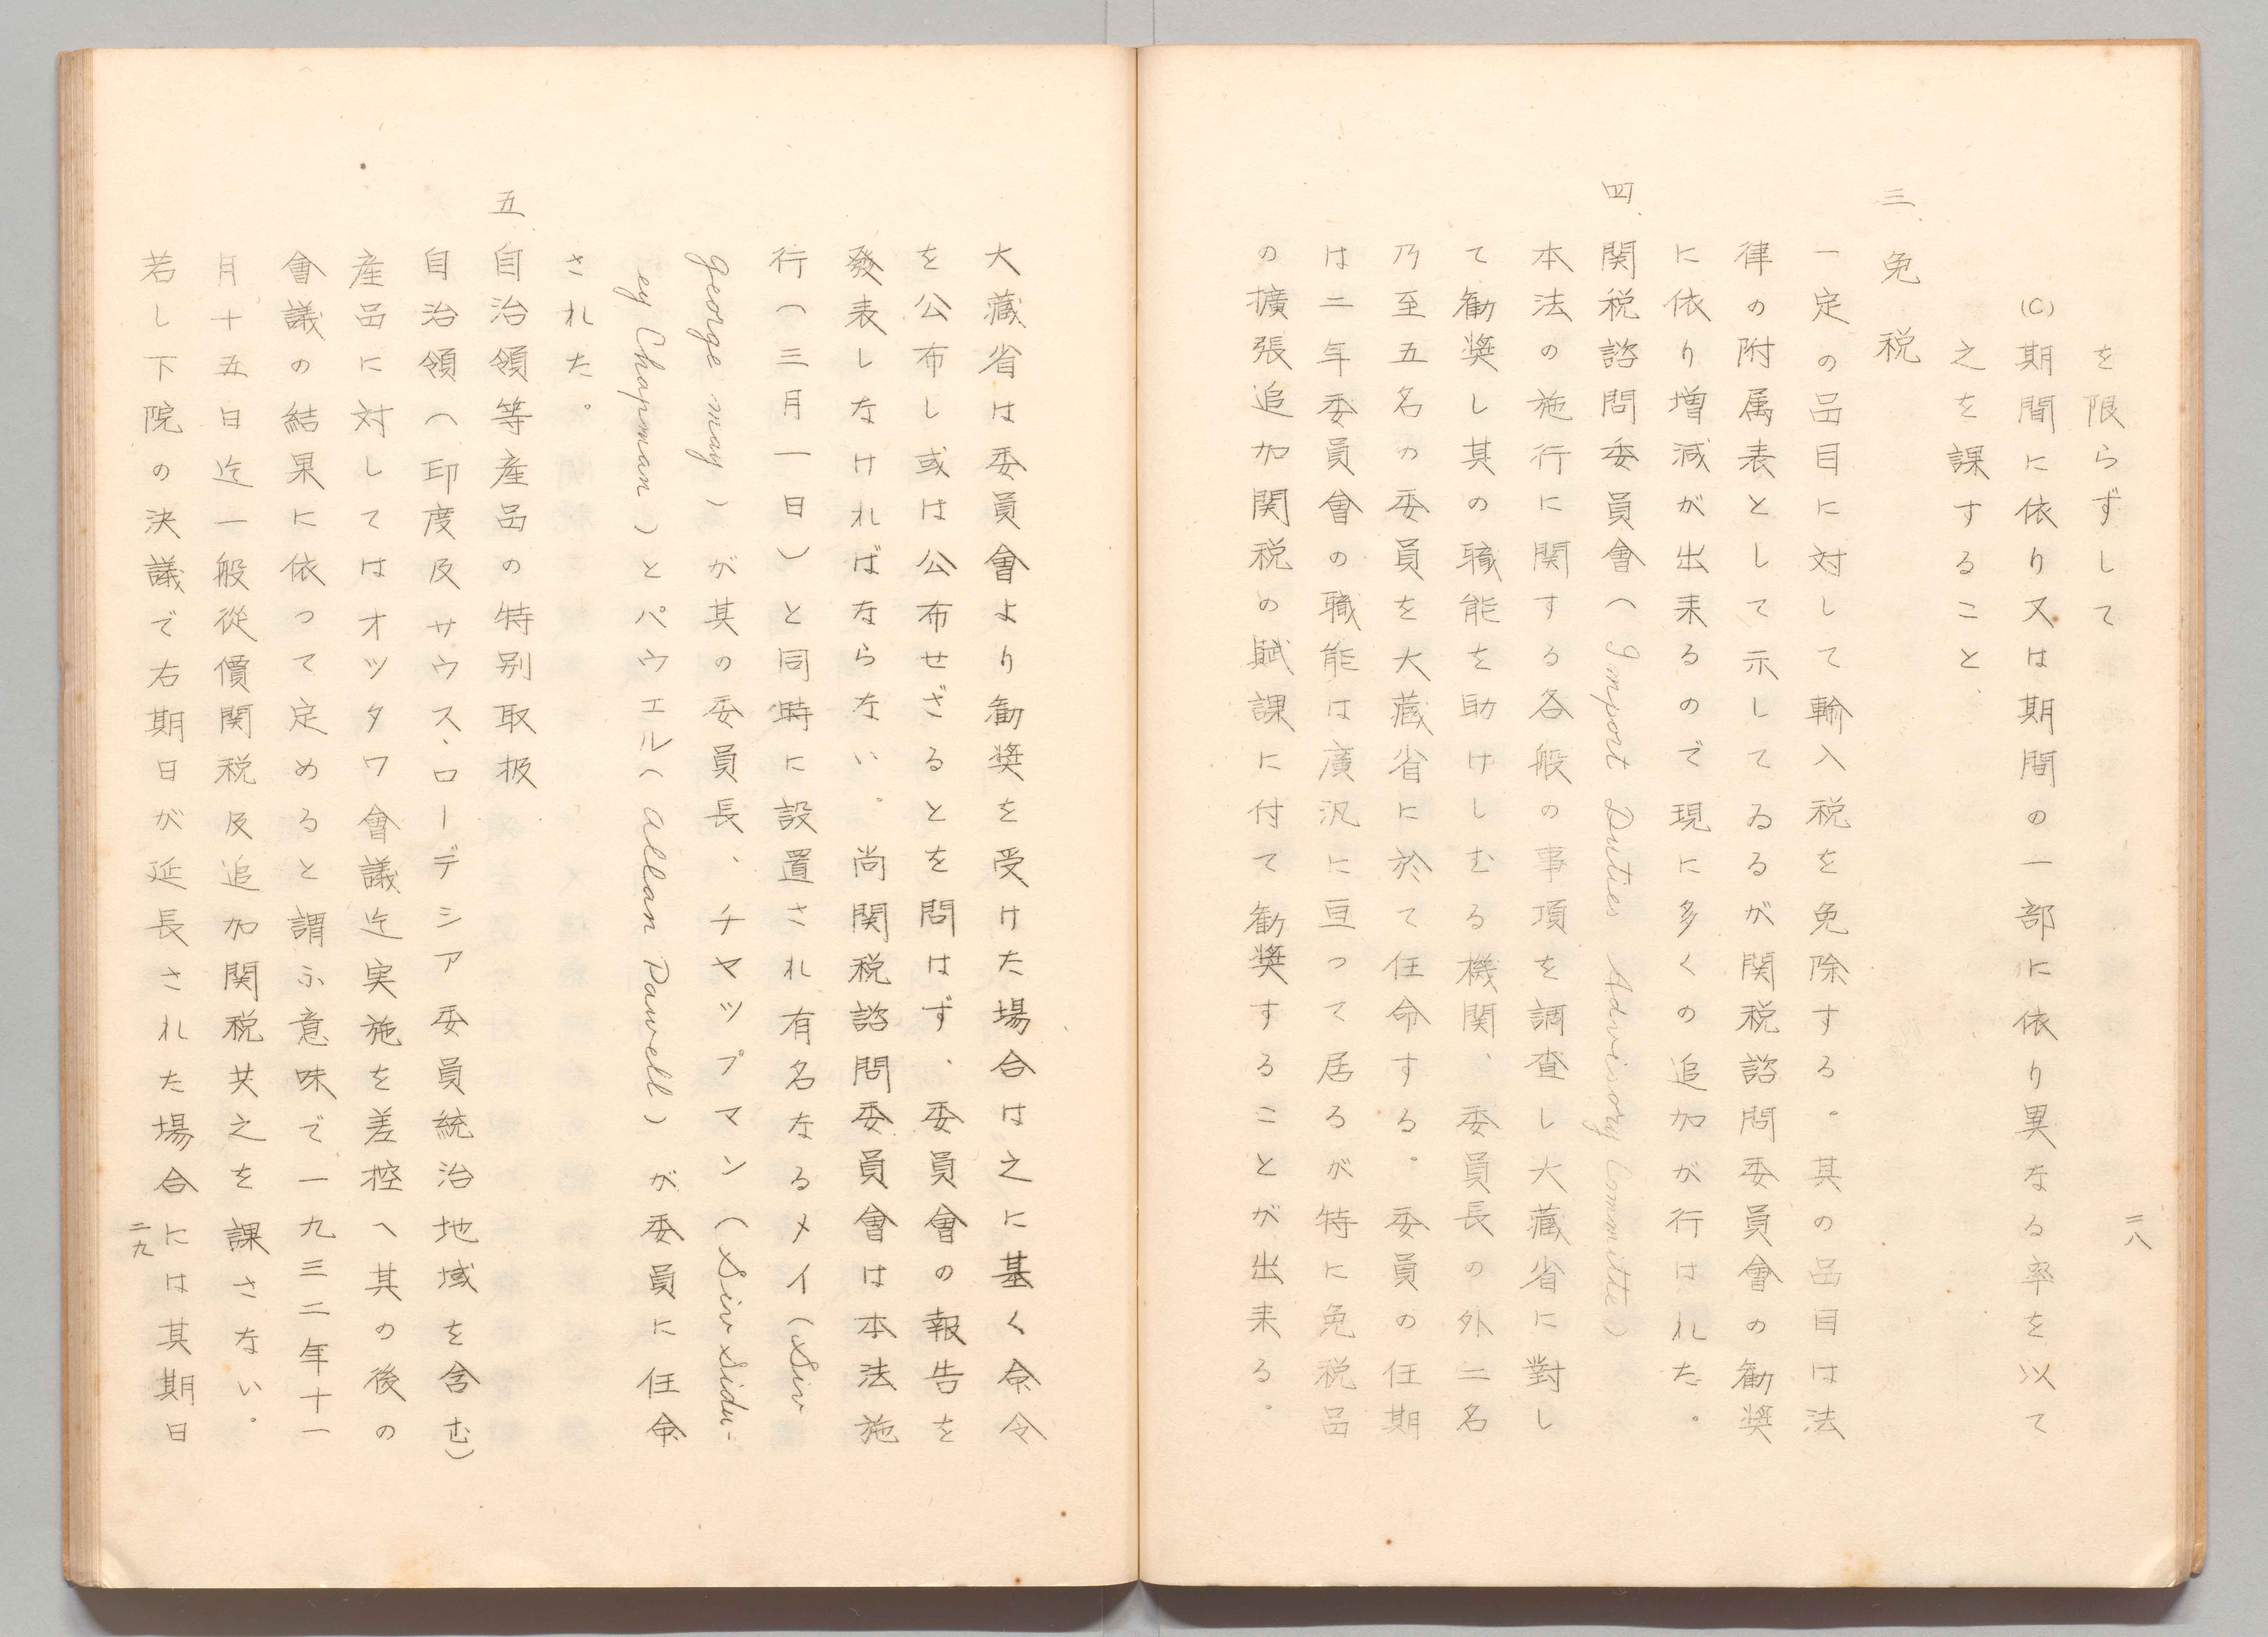 を限らずして
(C)期間に依り又は期間の一部に依り異なる率を以て
之を課すること、
三、免税
一定の品目に対して輸入税を免除する。其の品目は法
律の附属表として示してゐるが関税諮問委員會の勧奨
に依り増減が出来るので現に多くの追加が行はれた。
四、関税諮問委員會(Import Duties Advisory Committe)
本法の施行に関する各般の事項を調査し大藏省に對し
て勧奨し其の職能を助けしむる機関、委員長の外二名
乃至五名の委員を大藏省に於て任命する。委員の任期
は二年委員會の職能は廣汎に亘つて居るが特に免税品
の擴張追加関税の賦課に付て勧奨することが出来る。
二八
大藏省は委員會より勧奨を受けた場合は之に基く命令
を公布し或は公布せざるとを問はず、委員會の報告を
發表しなければならない。尚関税諮問委員會は本法施
行(三月一日)と同時に設置され有名なるメイ(Sir
George may)が其の委員長、チヤツプマン(Sir Sidn-
ey Chapman)とパウエル(Allan Pawell)が委員に任命
された。
五、自治領等産品の特别取扱
自治領(印度及サウス・ローデシア委員統治地域を含む)
産品に対してはオツタワ會議迄実施を差控へ其の後の
會議の結果に依つて定めると謂ふ意味で一九三二年十一
月十五日迄一般従價関税及追加関税共之を課さない。
若し下院の決議で右期日が延長された場合には其期日
二九